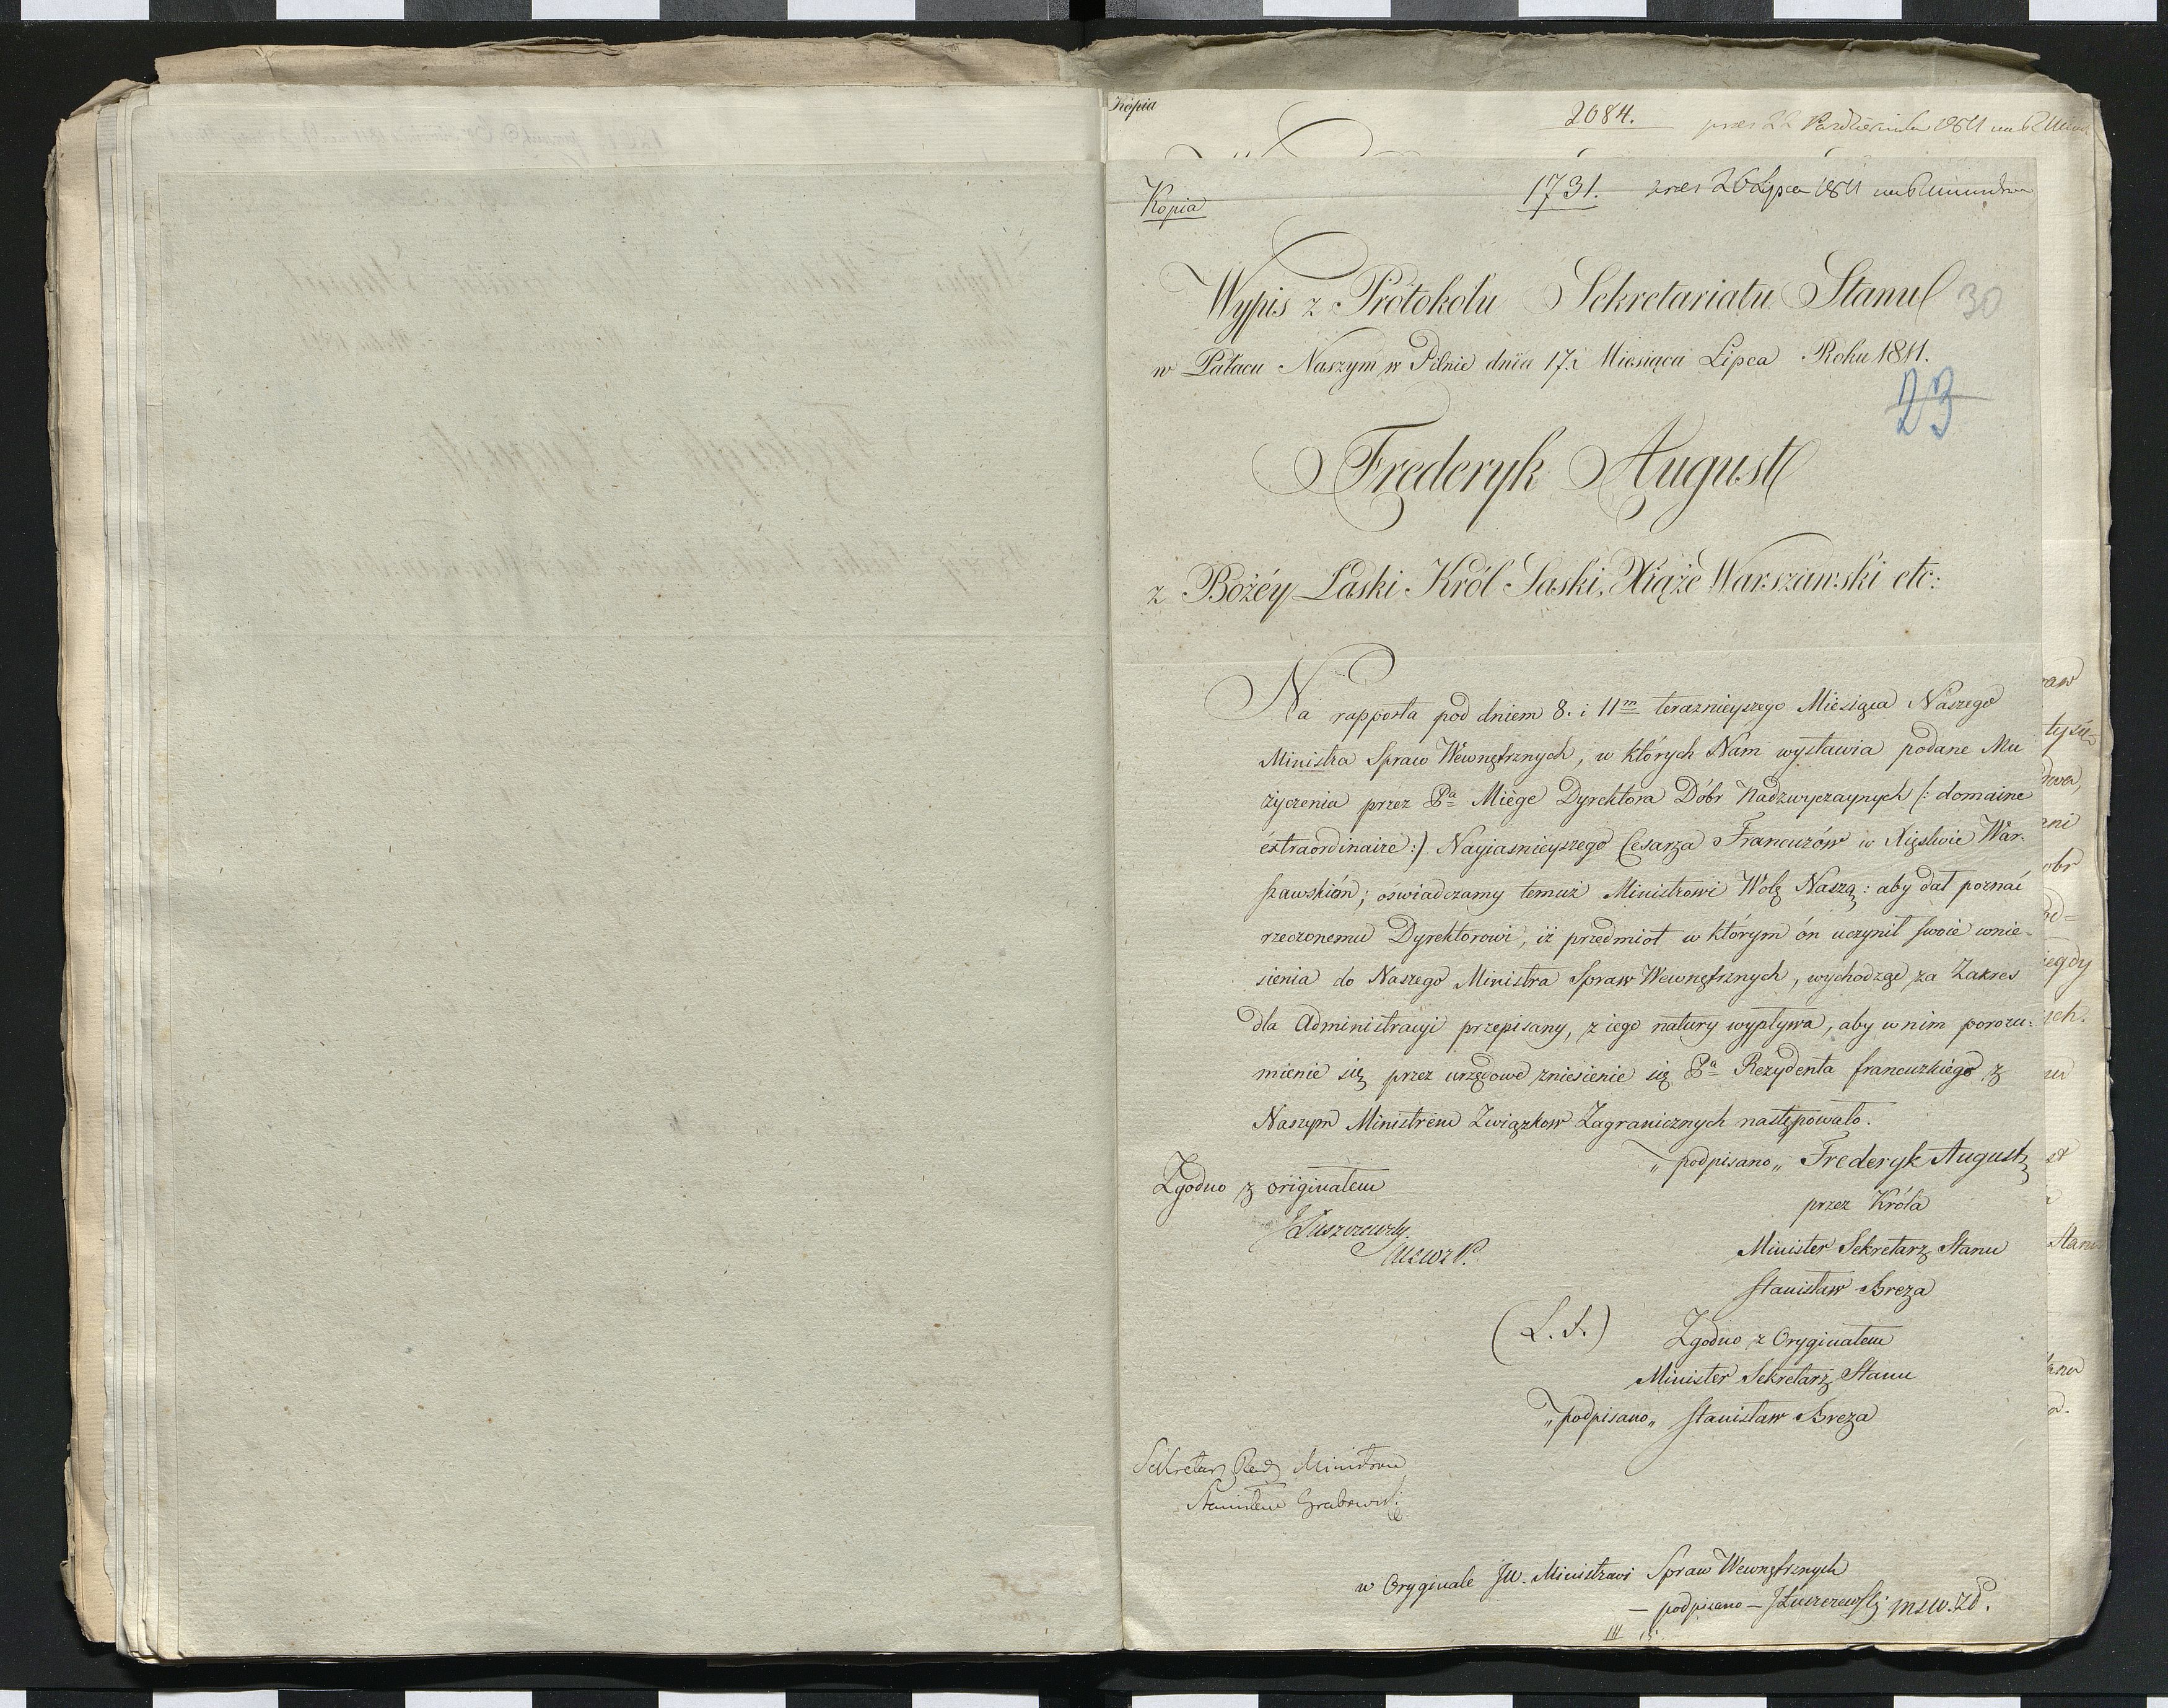 Kopia
2084.
przes 22 Października 1811
Kopia
1731. przes 26 Lipca 1811
Wypis z Protokołu Sekretariatu Stanu
30
w Pałacu Naszym w Pilnic dnia 17. Miesiąca Lipca Roku 1811.
23
Frederyk August
z Bożéy Łaski Król Saski, Xiąże Warszawski etc:
Na rapporta pod dniem 8. i 11m teraznieyszego Miesiąca Naszego
Ministra Spraw Wewnętrznych, w których Nam wystawia podane Mu
życzenia przez Pa Miège Dyrektora Dóbr Nadzwyczaynych (: domaine
éxtraordinaire :) Nayiasnieyszego Cesarza Francuzów w Xięstwie War-
szawskiém; oświadczamy temuż Ministrowi Wolę Naszą: aby dał poznać
rzeczonemu Dyrektorowi, iż przedmiot w którym ón uczynił swoie wnie-
sienia do Naszego Ministra Spraw Wewnętrznych, wychodząc za Zakres
dla Administracyi przepisany, z iego natury wypływa, aby w nim porozu-
mienie się przez urzędowe zniesienie się Pa Rezydenta francuzkiego z
Naszym Ministrem Związkow Zagranicznych następowało.
"podpisano" Frederyk August
Zgodno z originałem
przez Króla
JŁuszczewski
MSWZP.
Minister Sekretarz Stanu
Stanisław Breza
(L. S.) Zgodno z Oryginałem
Minister Sekretarz Stanu
"podpisano" Stanisław Breza
Sekretarz Rady Ministrow
Stanisław Grabowski
w Oryginale JW. Ministrowi Spraw Wewnętrznych
— podpisano — JŁuszczewski MSW.ZP.